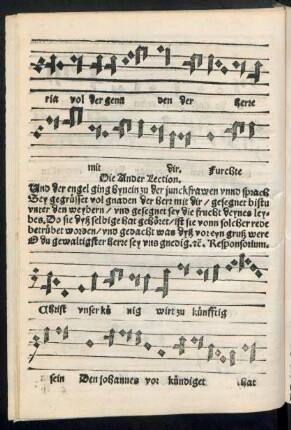 ria vol der genn den der herre
mit dir. Furchte
Die Ander Lection.
Und der engel ging hynein zu der junckfrawen vnnd sprach
Bey gegrüsset vol gnaden der herr mit dir / gesegnet bistu
vnter den weybern / vnd gesegnet sey die frucht deynes ley-
bes, Do sie dyß selbige hat gehöret / ist sie vonn solcher rede
betrübet worden / vnd gedacht was dyß vor eyn gruß were
O du gewaltigster herre sey vns gnedig. ꝛc. Responsorium.
Christ vnser kü nig wirt zu künfftig
sein Den johannes vor kündiget hat